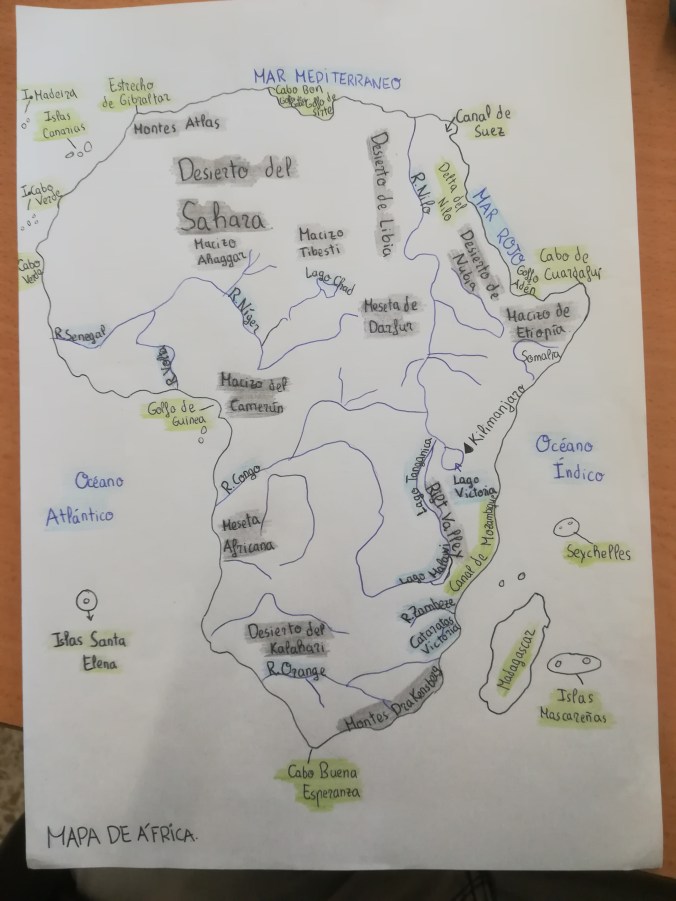 MAR MEDITERRANEO
I. Madeira
Estrecho
de Gibraltar
Cabo Bon
Golfo de
Sirte
Islas
Canarias
Montes Atlas
Canal de
Suez
Desierto del
Sahara
Desierto de Libia
R. Nilo
Delta del
Nilo
MAR ROJO
I. Cabo
Verde
Macizo
Ahaggar
Macizo
Tibesti
Desierto de
Nubia
Cabo de
Guardafur
Golfo
Adén
Cabo
Verde
Lago Chad
R. Níger
Meseta de
Darfur
Macizo de
Etiopía
R. Senegal
Somalia
R. Volta
Macizo del
Camerún
Golfo de
Guinea
Kilimanjaro
Océano
Índico
Océano
Atlántico
R. Congo
Lago Tanganica
Lago
Victoria
Rift Valley
Meseta
Africana
Canal de Mozambique
Seychelles
Lago Malawi
R. Zambeze
Cataratas
Victoria
Islas Santa
Elena
Desierto del
Kalahari
R. Orange
Madagascar
Islas
Mascareñas
Montes Drakensberg
Cabo Buena
Esperanza
MAPA DE ÁFRICA.